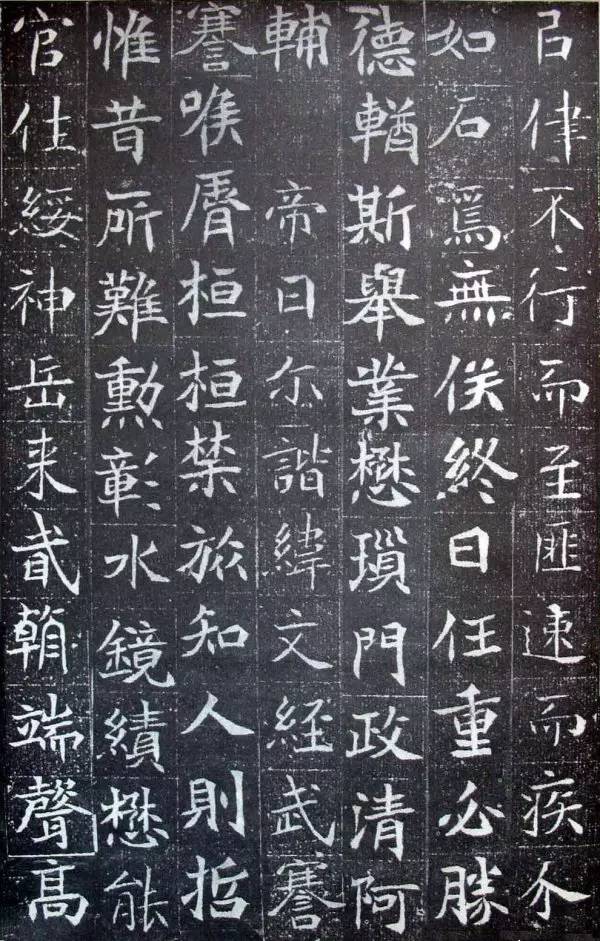 㠯律不行而至匪速而疾介
如石焉無俟終日任重必勝
德輶斯舉業懋瑣門政清阿
輔 帝曰尓諧緯文経武謇
謇喉脣桓桓禁旅知人則哲
惟昔所難勳彰水鏡績懋能
官任綏神岳来貳朝端聲高